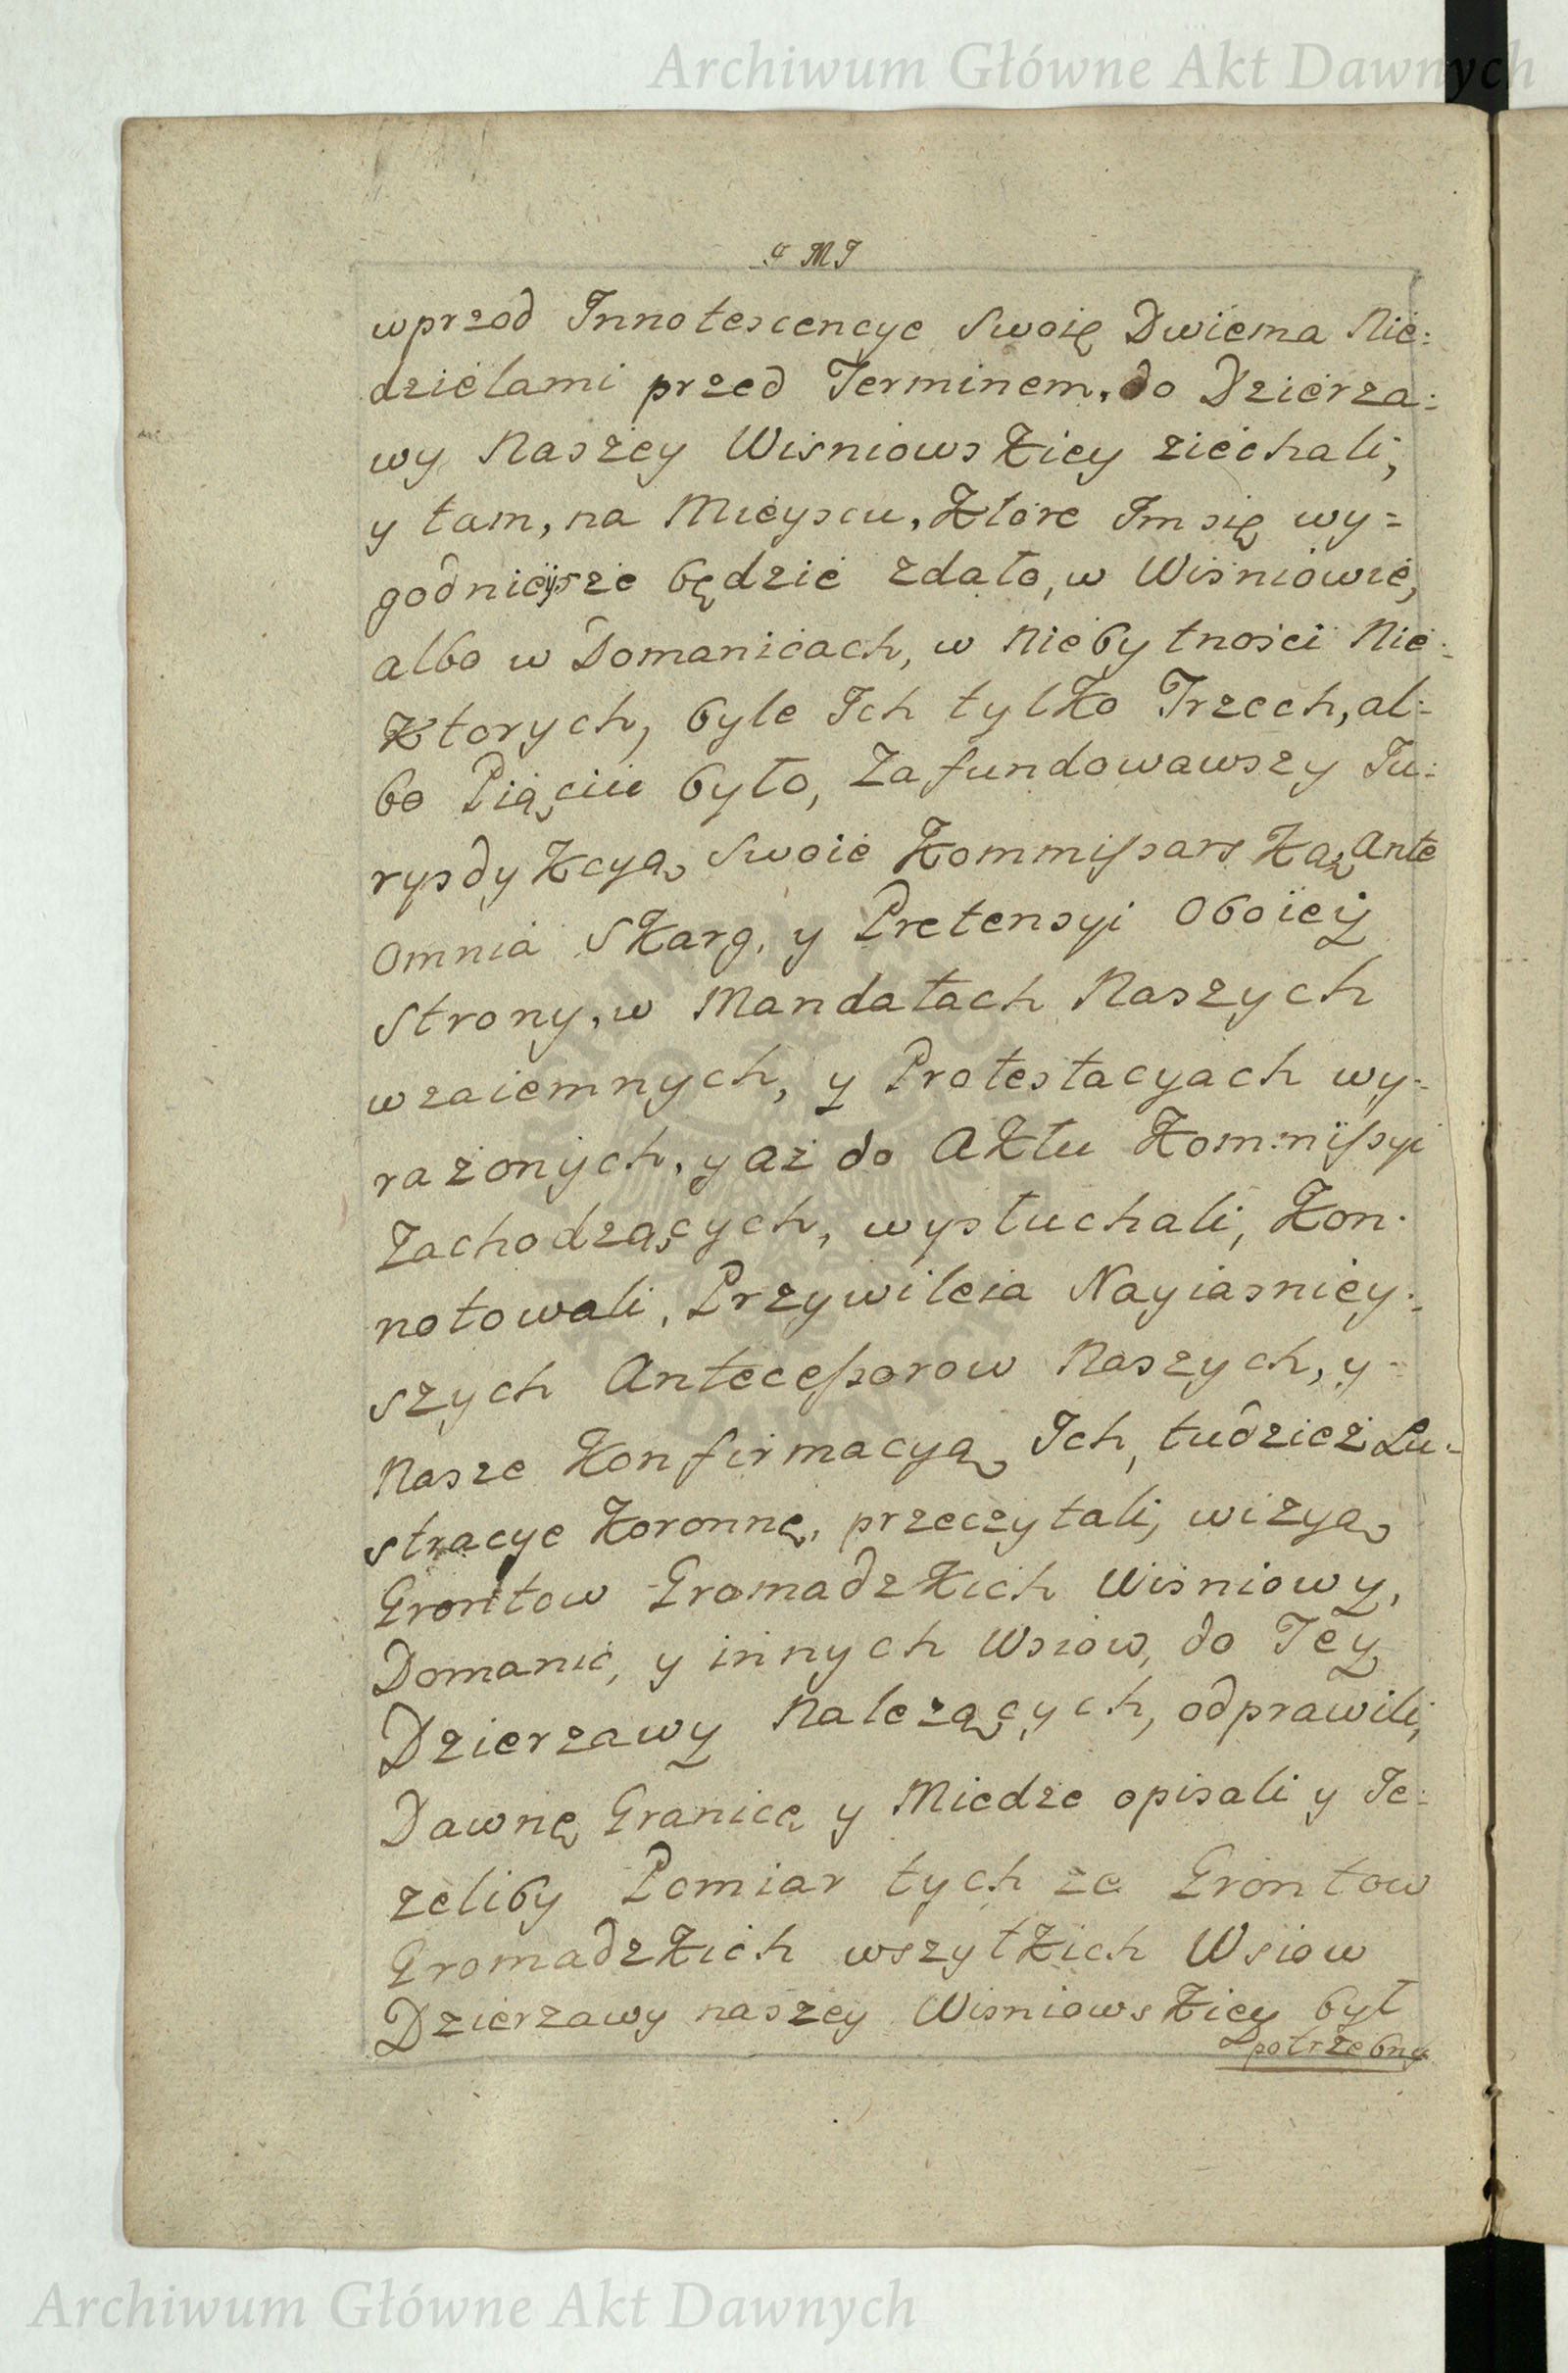 Archiwum Główne Akt Dawnych
J M J
wprzod Innotescencye Swoię Dwiema Nie:
dzielami przed Terminem, do Dzierza:
wy Naszey Wisniowskiey ziechali,
y tam, na Mieyscu, Ktore Im się wy=
godnieysze będzie zdało, w Wisniowie,
albo w Domanicach, w Niebytnosci Nie:
Ktorych, byle Ich tylko Trzech, al:
bo Piąciu było, Zafundowawszy Iu:
rysdykcyą Swoie Kommissarską Ante
Omnia Skarg, y Pretensyi Oboiey
Strony, w Mandatach Naszych
wzaiemnych, y Protestacyach wy:
rażonych, y aż do Aktu Kommissyi
Zachodzących, wysłuchali, Kon:
notowali, Przywileia Nayiasniey:
szych Antecessorow Naszych, y
Nasze Konfirmacyą Ich, tudzież Lu:
stracye Koronnę, przeczytali, wizyą
Grontow Gromadzkich Wisniowy,
Domanic, y innych Wsiow, do Tey
Dzierzawy Nalezących, odprawili,
Dawnę Granicę y Miedze opisali y Ie:
zeliby Pomiar tych ze Grontow
Gromadzkich wszytkich Wsiow
Dzierzawy naszey Wisniowskiey był
potrzebny
Archiwum Główne Akt Dawnych